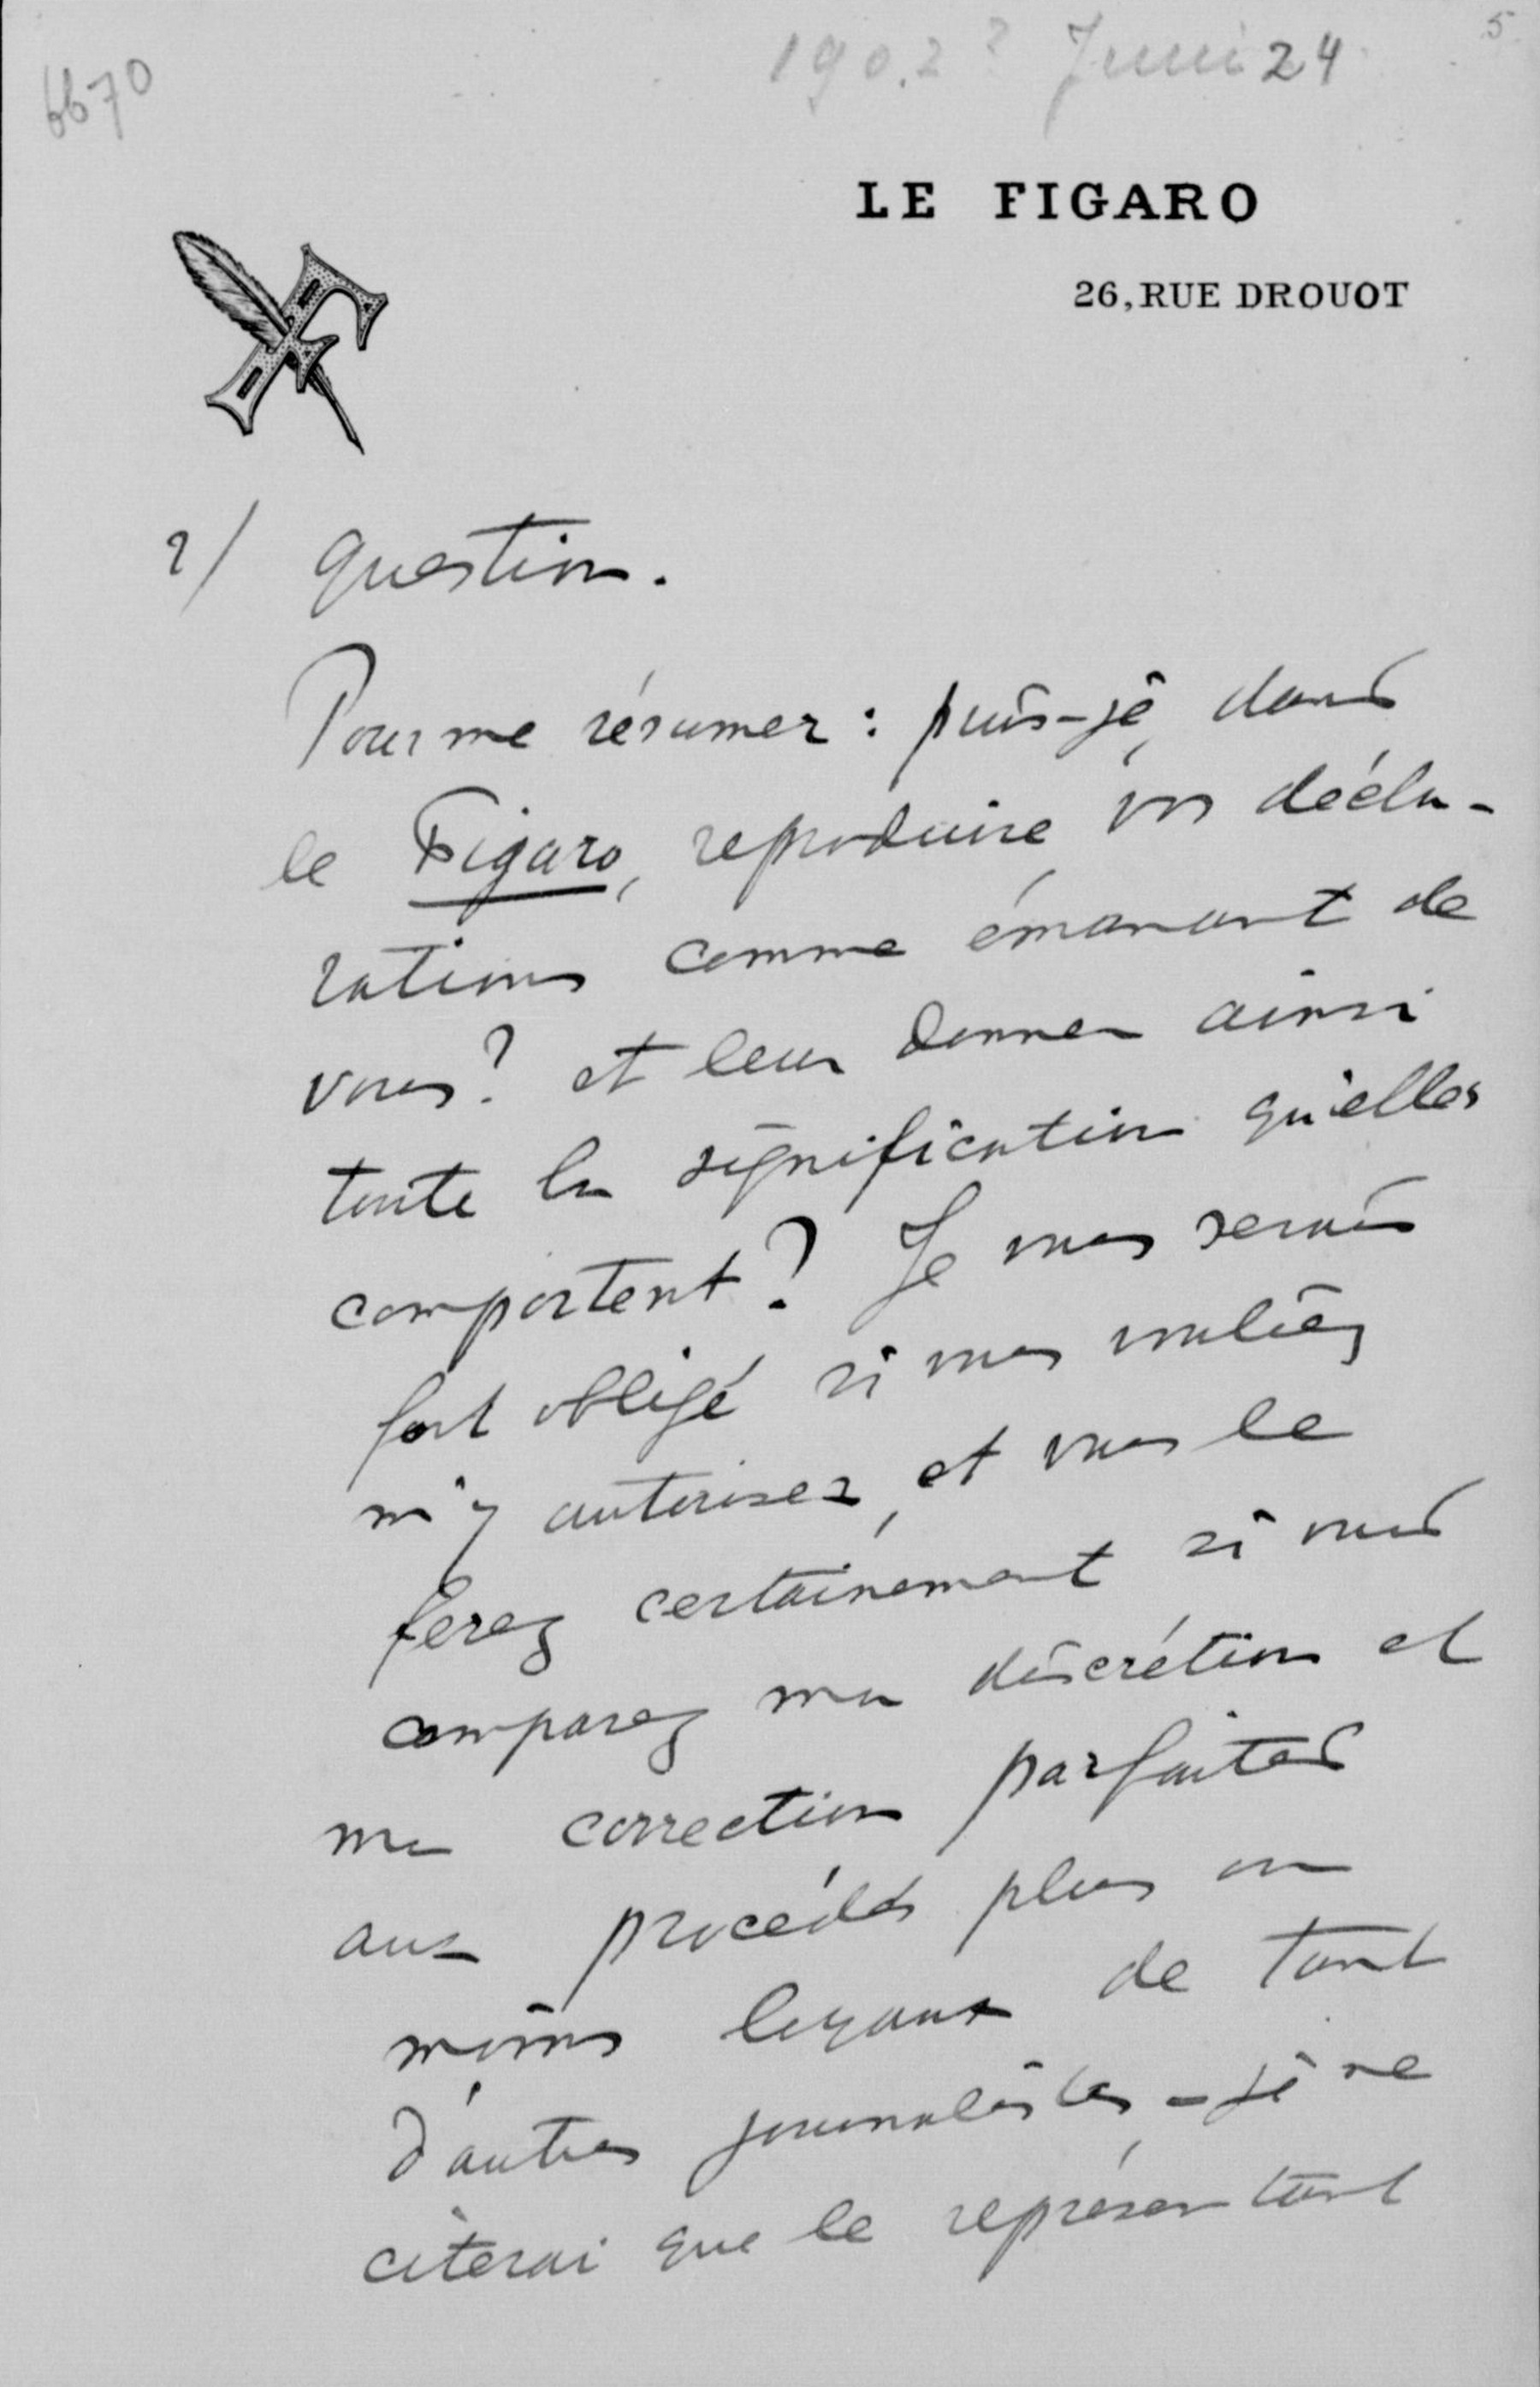 1902? Juni 24
5
6670
LE FIGARO
26, RUE DROUOT
2/ question.
Pour me résumer : puis-je, dans
le Figaro, reproduire vos décla-
rations comme émanant de
vous? et leur donner ainsi
toute la signification qu'elles
comportent? Je vous serais
fort obligé si vous vouliez
m'y autoriser, et vous le
ferez certainement si vous
comparez ma discrétion et
ma correction parfaites
aux procédés plus ou
moins loyaux de tant
d'autres journalistes - je ne
citerai que le représentant